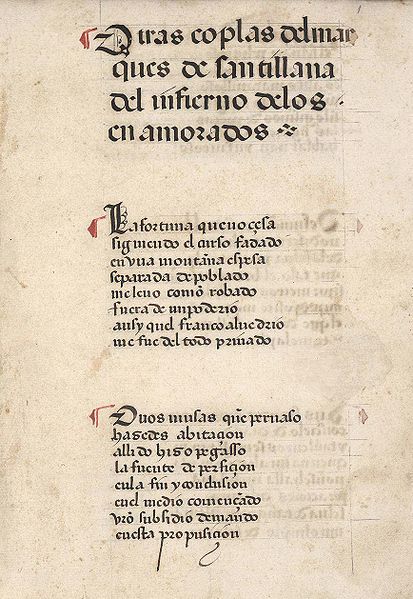 Otras coplas del mar
ques de santillana
del infierno delos
enamorados
La fortuna que no çesa
siguiendo el curso fadado
en vna montaña espesa
separada de poblado
me leuo como robado
fuera de mi poderio
ansy quel franco aluedrio
me fue del todo priuado
O vos musas quen pernaso
hagedes abitaçion
alli do hizo pegasso
la fuente de perfiçion
en la fin y conclusion
enel medio començãdo
vr̃o subsidio demãdo
en esta proposiçion